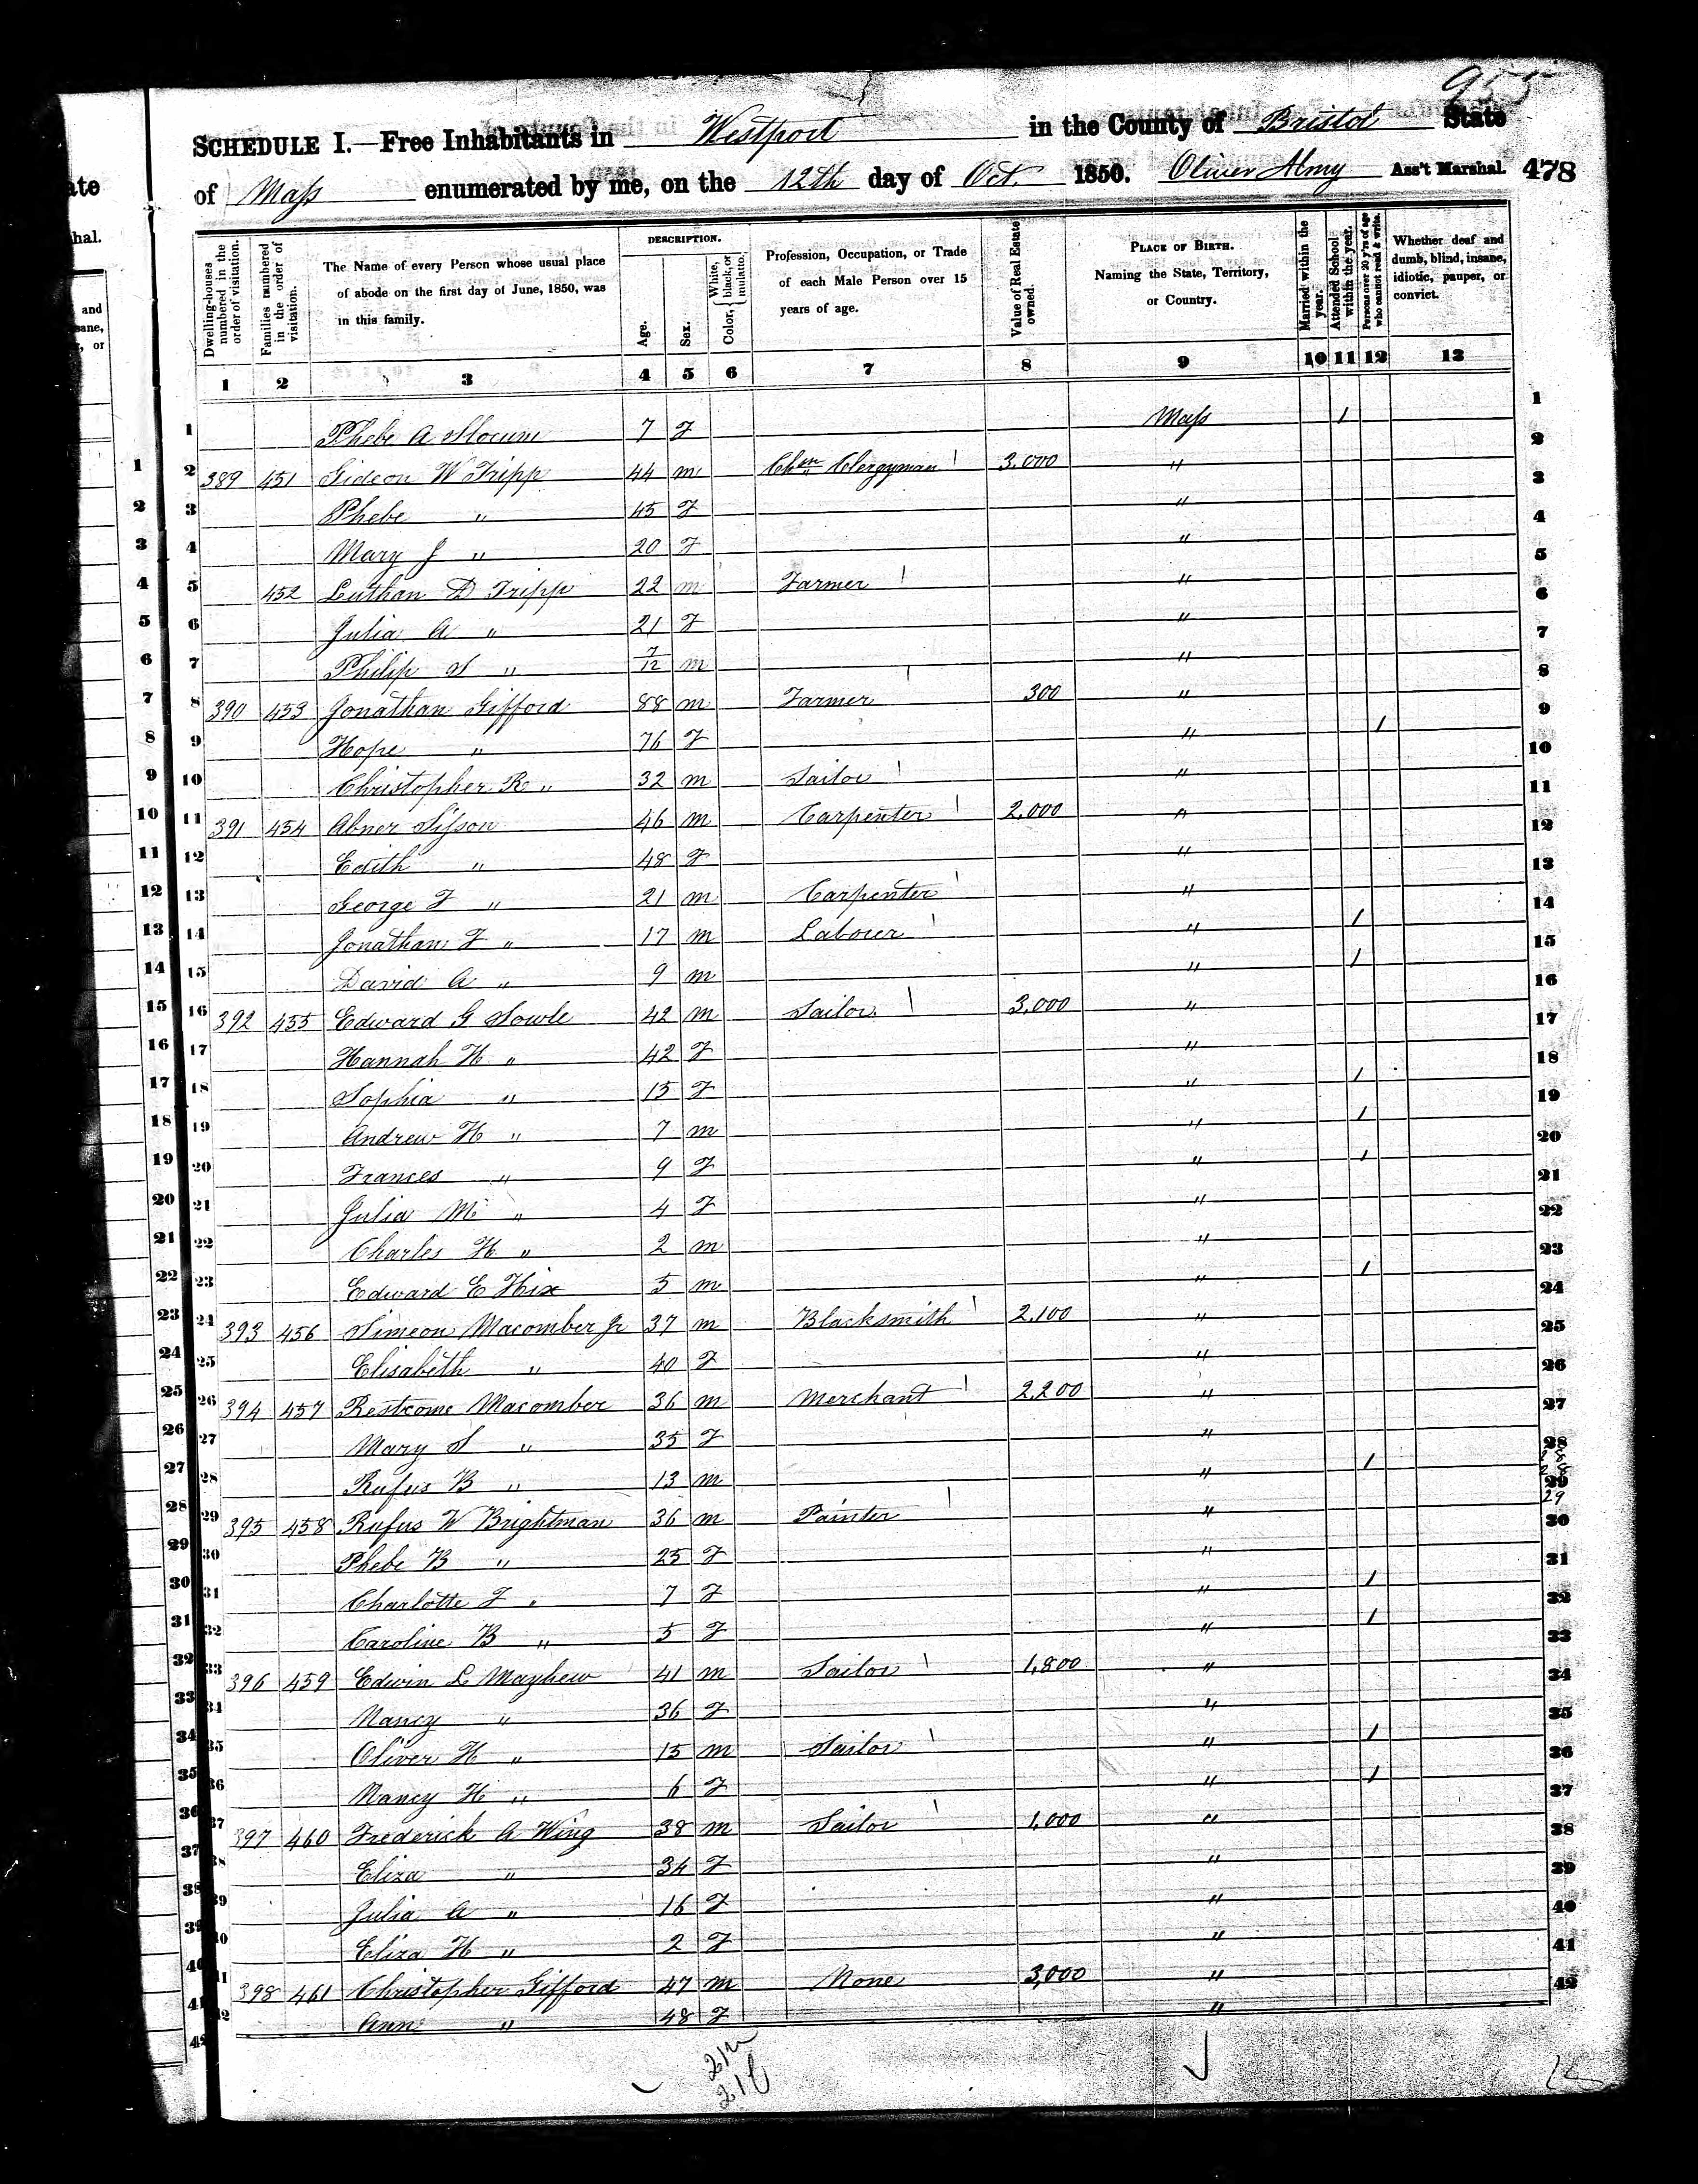 955
SCHEDULE I.—Free Inhabitants in Westport in the County of Bristol State
of Mass enumerated by me, on the 12th day of Oct. 1850. Oliver Almy Ass't Marshal. 478
Dwelling-houses numbered in the order of visitation.
Families numbered in the order of visitation.
The Name of every Person whose usual place of abode on the first day of June, 1850, was in this family.
DESCRIPTION.
Age.
Sex.
Color, { White, black, or mulatto.
Profession, Occupation, or Trade of each Male Person over 15 years of age.
Value of Real Estate owned.
PLACE OF BIRTH. Naming the State, Territory, or Country.
Married within the year.
Attended School within the year.
Persons over 20 y'rs of age who cannot read & write.
Whether deaf and dumb, blind, insane, idiotic, pauper, or convict.
1 2 3 4 5 6 7 8 9 10 11 12 13
1 Phebe A Slocum 7 F Mass 1
2 389 451 Gideon W Tripp 44 m Chn Clergyman 3,000 "
3 Phebe " 45 F "
4 Mary J " 20 F "
5 452 Luthan D Tripp 22 m Farmer "
6 Julia A " 21 F "
7 Philip S " 7/12 m "
8 390 453 Jonathan Gifford 88 m Farmer 300 "
9 Hope " 76 F " 1
10 Christopher R " 32 m Sailor "
11 391 454 Abner Sisson 46 m Carpenter 2,000 "
12 Edith " 48 F "
13 George F " 21 m Carpenter "
14 Jonathan F " 17 m Labourer " 1
15 David A " 9 m " 1
16 392 455 Edward G Sowle 42 m Sailor 3,000 "
17 Hannah H " 42 F "
18 Sophia " 15 F " 1
19 Andrew H " 7 m " 1
20 Frances " 9 F " 1
21 Julia M " 4 F "
22 Charles H " 2 m "
23 Edward E Hix 5 m " 1
24 393 456 Simeon Macomber Jr 37 m Blacksmith 2,100 "
25 Elisabeth " 40 F "
26 394 457 Restcome Macomber 36 m Merchant 2,200 "
27 Mary S " 35 F "
28 Rufus B " 13 m " 1
29 395 458 Rufus W Brightman 36 m Painter "
30 Phebe B " 25 F "
31 Charlotte F " 7 F " 1
32 Caroline B " 5 F " 1
33 396 459 Edwin L Mayhew 41 m Sailor 1,800 "
34 Nancy " 36 F "
35 Oliver H " 15 m Sailor " 1
36 Nancy H " 6 F " 1
37 397 460 Frederick A Wing 38 m Sailor 1,000 "
38 Eliza " 34 F "
39 Julia A " 16 F "
40 Eliza H " 2 F "
41 398 461 Christopher Gifford 47 m None 3,000 "
42 Ann " 48 F "